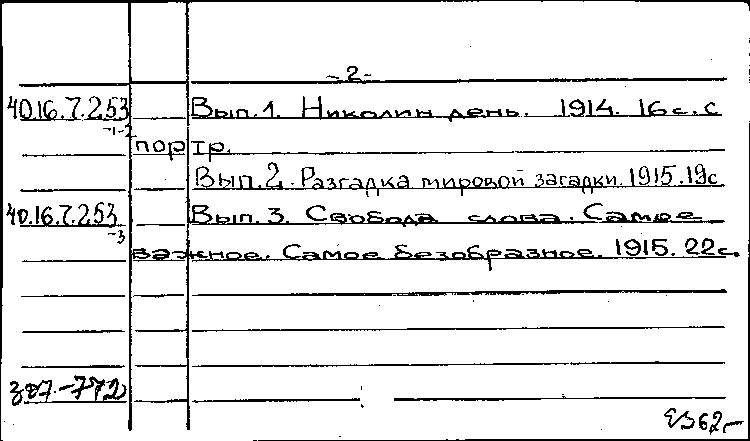 -2-
40.16.7.253 Вып.1. Николин день. 1914. 16с. с
-1-2
портр.
Вып.2. Разгадка мировой загадки. 1915. 19с
40.16.7.253 Вып.3. Свобода слова. Самое
-3
важное. Самое безобразное. 1915. 22с.
387-772